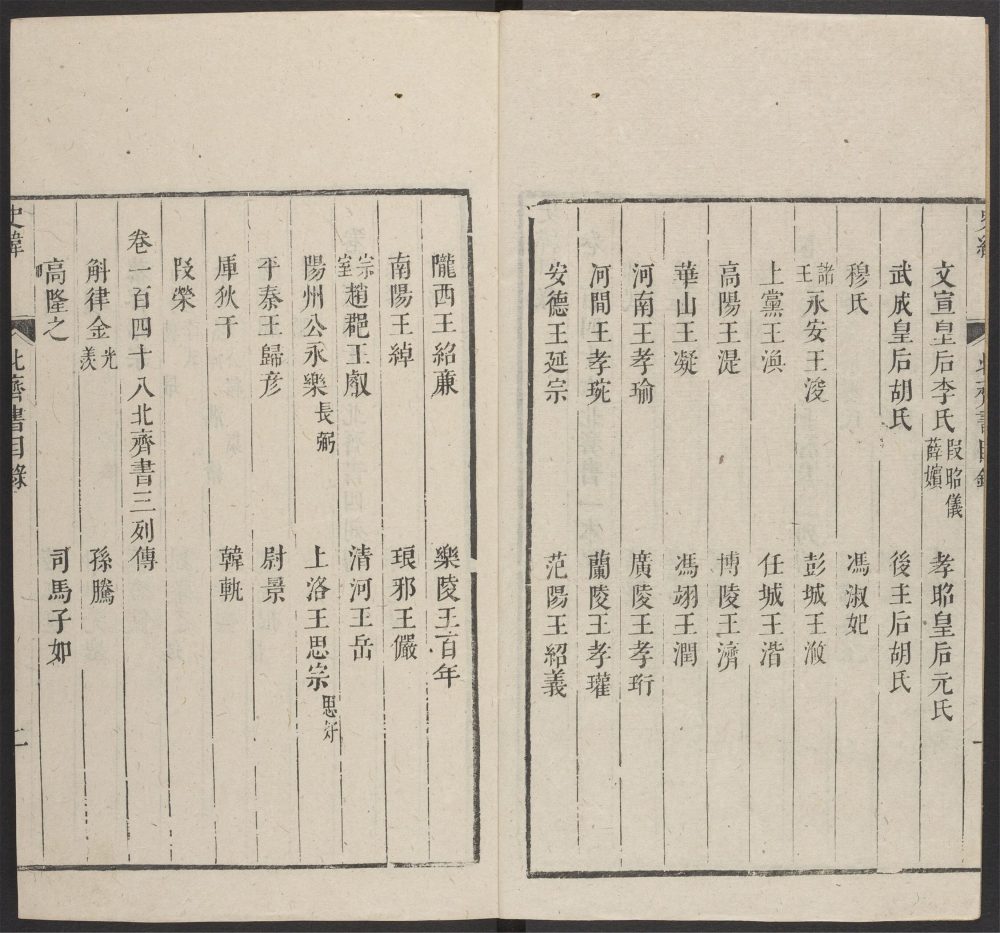 文宣皇后李氏 段昭儀 薛嬪 孝昭皇后元氏
武成皇后胡氏 後主后胡氏
穆氏 馮淑妃
諸王 永安王浚 彭城王浟
上黨王渙 任城王湝
高陽王湜 博陵王濟
華山王凝 馮翊王潤
河南王孝瑜 廣陵王孝珩
河間王孝琬 蘭陵王孝瓘
安德王延宗 范陽王紹義
隴西王紹廉 樂陵王百年
南陽王綽 琅邪王儼
宗室 趙郡王叡 清河王岳
陽州公永樂 長弼 上洛王思宗 思好
平秦王歸彥 尉景
厙狄干 韓軌
段榮
卷一百四十八北齊書三列傳
斛律金 光 羨 孫騰
高隆之 司馬子如
史緯 北齊書目錄 二